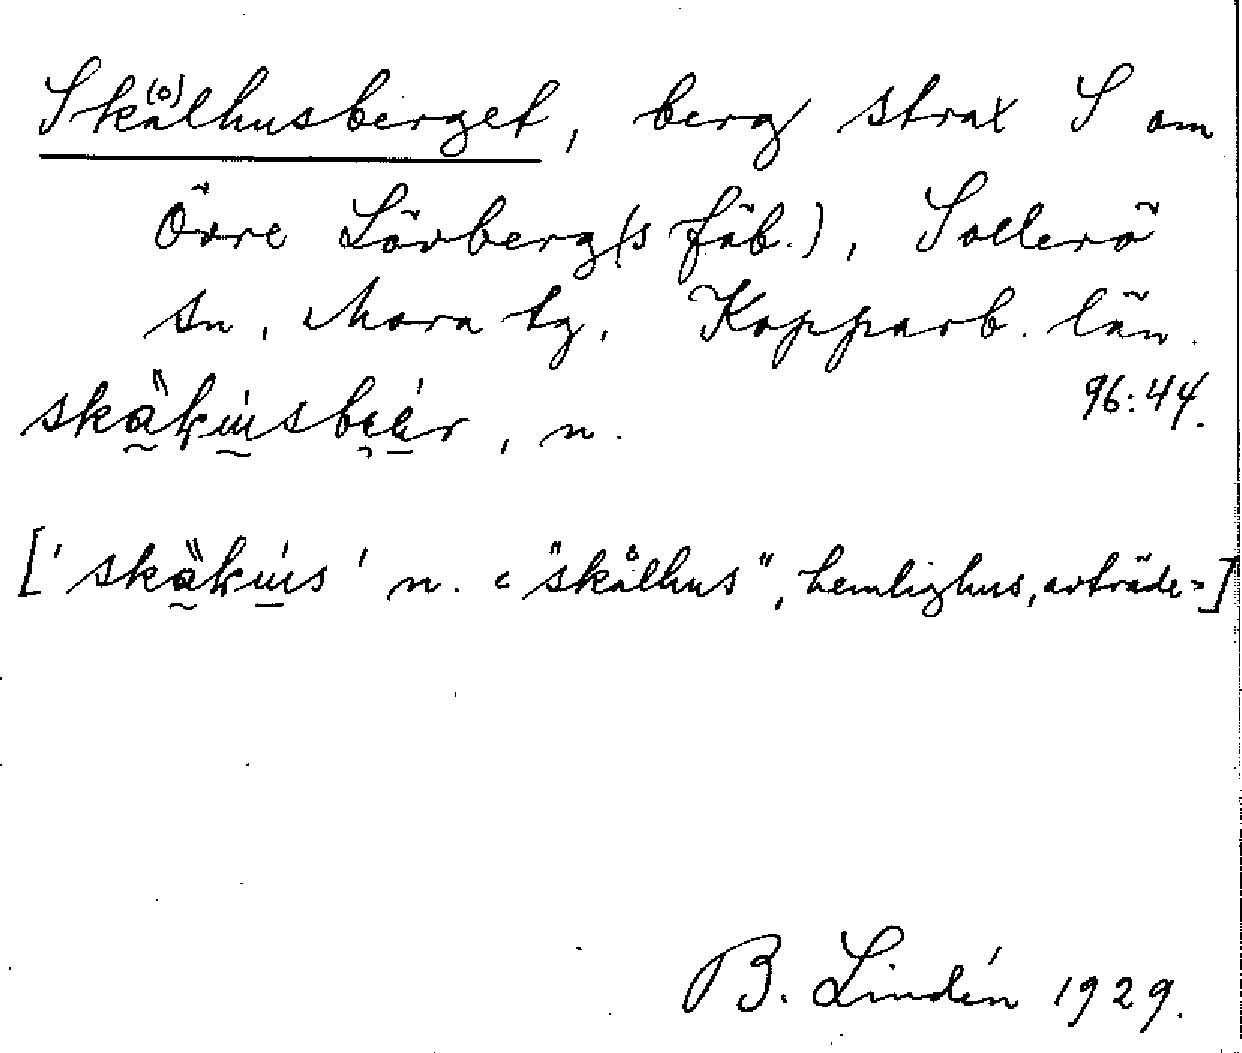 Sk(o)ålhusberget, berg strax S om
Övre Lövberg(s fäb.), Sollerö
sn, Mora tg, Kopparb. län.
96:44.
skäkusbeär, n.
['skäkus' n. = "skålhus", hemlighus, avträde=]
B. Lindén 1929.